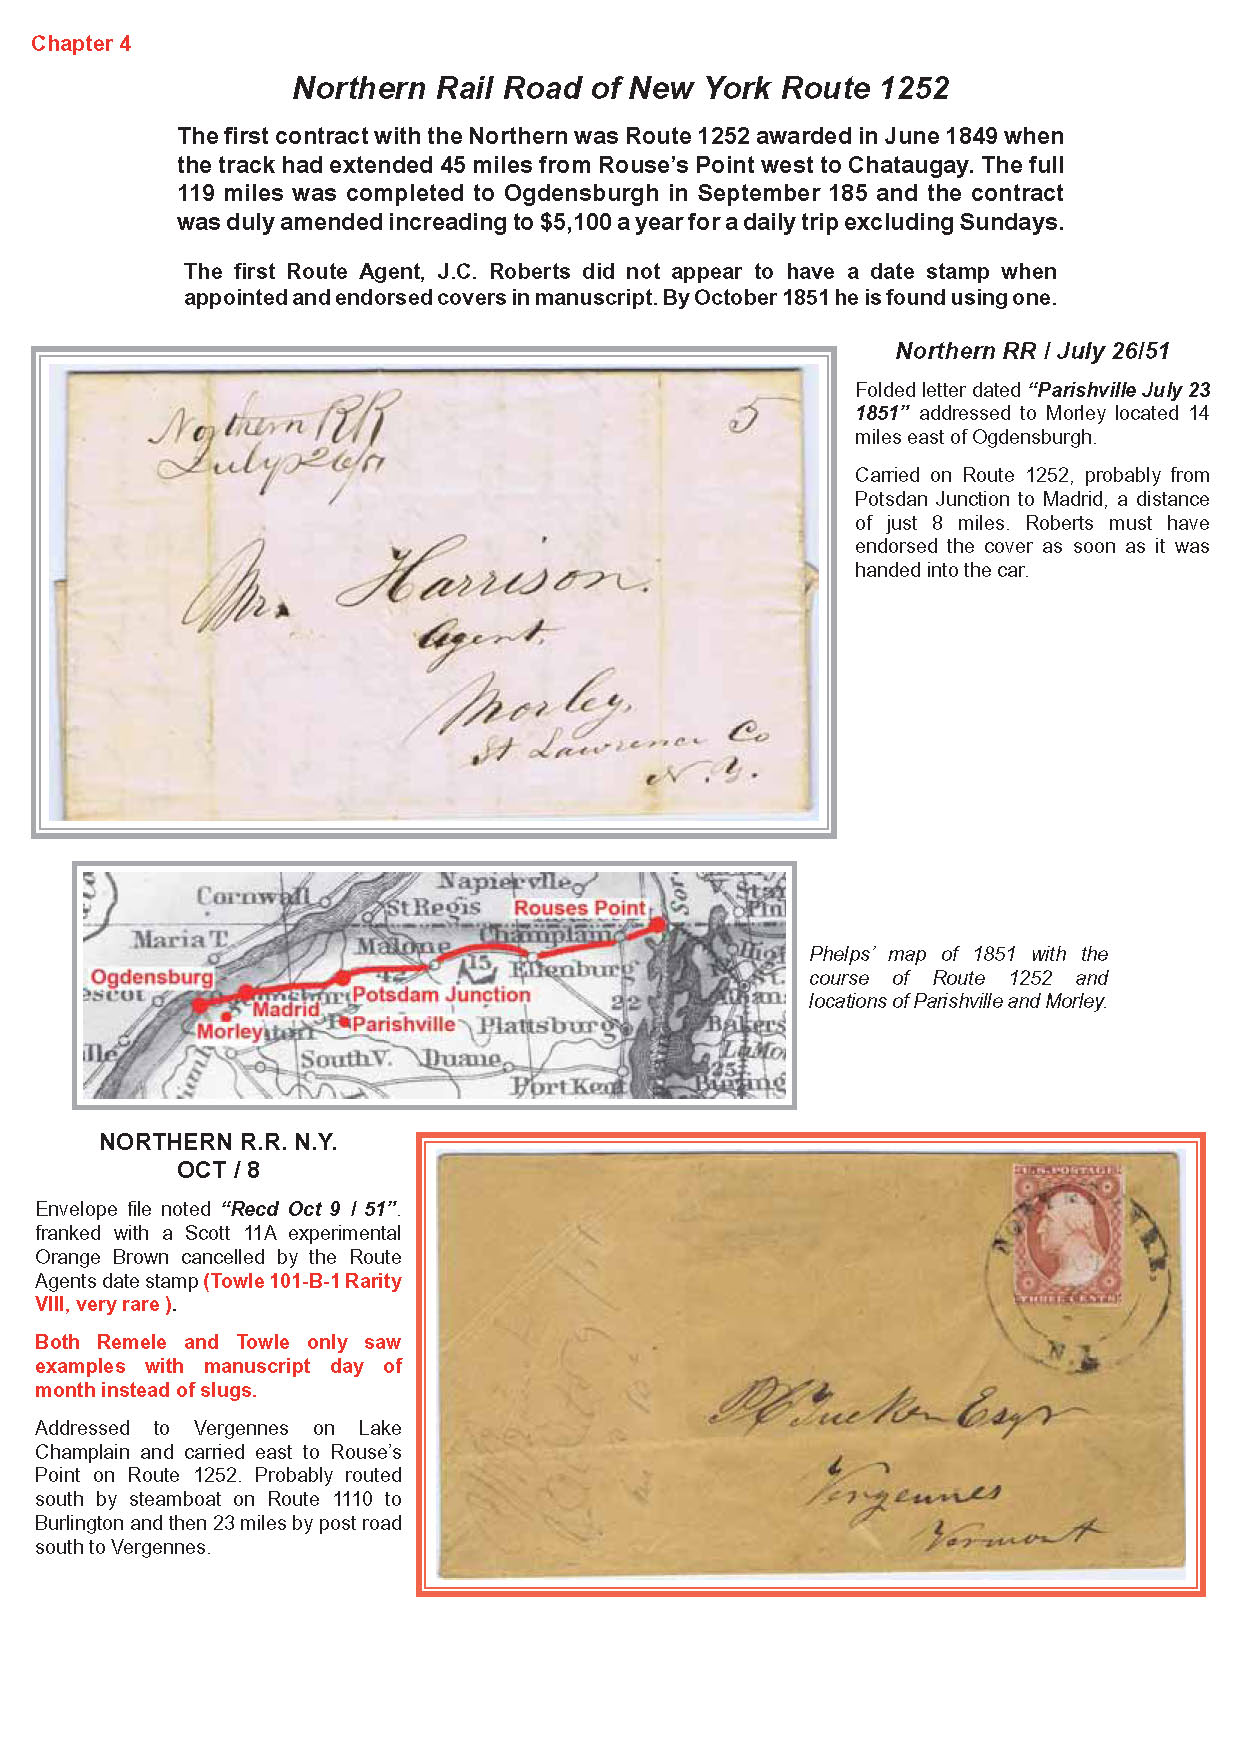 Chapter 4
Northern Rail Road of New York Route 1252
The first contract with the Northern was Route 1252 awarded in June 1849 when
the track had extended 45 miles from Rouse's Point west to Chataugay. The full
119 miles was completed to Ogdensburgh in September 185 and the contract
was duly amended increading to $5,100 a year for a daily trip excluding Sundays.
The first Route Agent, J.C. Roberts did not appear to have a date stamp when
appointed and endorsed covers in manuscript. By October 1851 he is found using one.
Northern RR
July 26/51
5
Mr. Harrison.
Agent,
Morley,
St Lawrence Co
N.Y.
Northern RR / July 26/51
Folded letter dated “Parishville July 23
1851” addressed to Morley located 14
miles east of Ogdensburgh.
Carried on Route 1252, probably from
Potsdan Junction to Madrid, a distance
of just 8 miles. Roberts must have
endorsed the cover as soon as it was
handed into the car.
Napierville
Cornwall
St Regis
Rouses Point
Maria T.
Malone
Champlain
Ogdensburg
15
Ellenburg
Potsdam Junction
22
Madrid
Morley
Parishville
Plattsburg
South V.
Duane
Port Kent
25
Phelps’ map of 1851 with the
course of Route 1252 and
locations of Parishville and Morley.
NORTHERN R.R. N.Y.
OCT / 8
Envelope file noted “Recd Oct 9 / 51”.
franked with a Scott 11A experimental
Orange Brown cancelled by the Route
Agents date stamp (Towle 101-B-1 Rarity
VIII, very rare ).
Both Remele and Towle only saw
examples with manuscript day of
month instead of slugs.
Addressed to Vergennes on Lake
Champlain and carried east to Rouse’s
Point on Route 1252. Probably routed
south by steamboat on Route 1110 to
Burlington and then 23 miles by post road
south to Vergennes.
U.S. POSTAGE
THREE CENTS
Tucker Esqr
Vergennes
Vermont